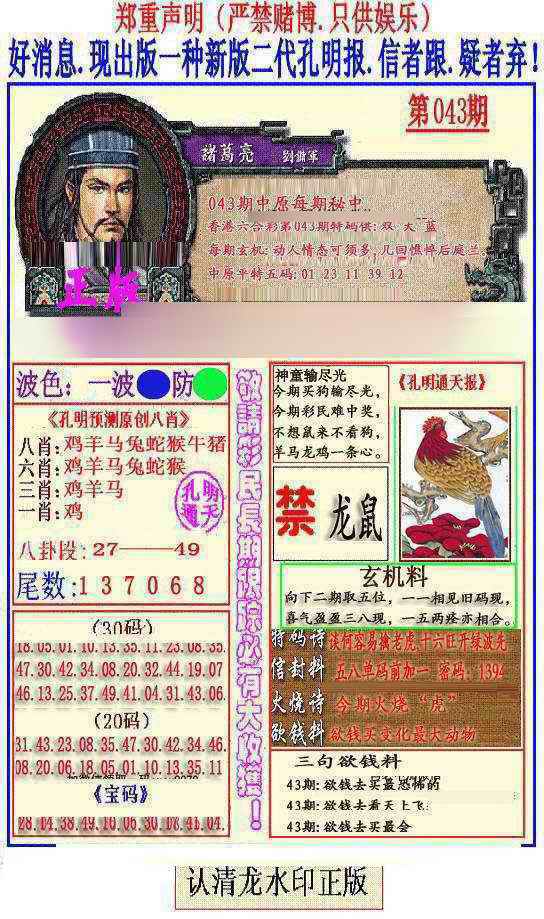 郑重声明（严禁赌博.只供娱乐）
好消息.现出版一种新版二代孔明报.信者跟.疑者弃!
第043期
諸葛亮 劉備軍
043期中原每期秘中..
香港六合彩第043期特码供: 双 大 蓝
每期玄机: 动人情态可须多, 几回憔悴后庭兰。
中原平特五码: 01 23 11 39 12
正版
波色: 一波 防
《孔明预测原创八肖》
八肖: 鸡羊马兔蛇猴牛猪
六肖: 鸡羊马兔蛇猴
三肖: 鸡羊马
一肖: 鸡
孔明通天
八卦段: 27——49
尾数: 137068
(30码)
18.05.01.10.13.35.11.23.08.35.
47.30.42.34.08.20.32.44.19.07
46.13.25.37.49.41.04.31.43.06.
(20码)
31.43.23.08.35.47.30.42.34.46.
08.20.06.18.05.01.10.13.35.11
《宝码》
28.04.38.49.10.06.30.08.41.04.
敬請彩民長期跟踪必有大收獲!
神童输尽光
今期买狗输尽光,
今期彩民难中奖,
不想鼠来不看狗,
羊马龙鸡一条心。
《孔明通天报》
禁 龙鼠
玄机料
向下二期取五位, 一一相见旧码现,
喜气盈盈三八现, 一五两疼亦相合。
特码诗 谈何容易擒老虎,十六江开绿波先
信封料 五八单码前加一 密码: 1394
火烧诗 今期火烧“虎”
欲钱料 欲钱买变化最大动物
三句欲钱料
43期: 欲钱去买最恐怖的
43期: 欲钱去看天上飞.
43期: 欲钱去买最会
认清龙水印正版